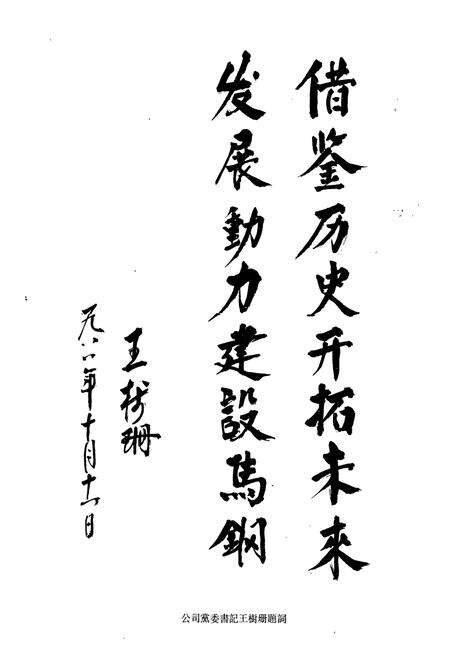 借鉴历史开拓未來
发展動力建設馬鋼
王树珊
年十月
日
公司黨委書記王樹珊題詞